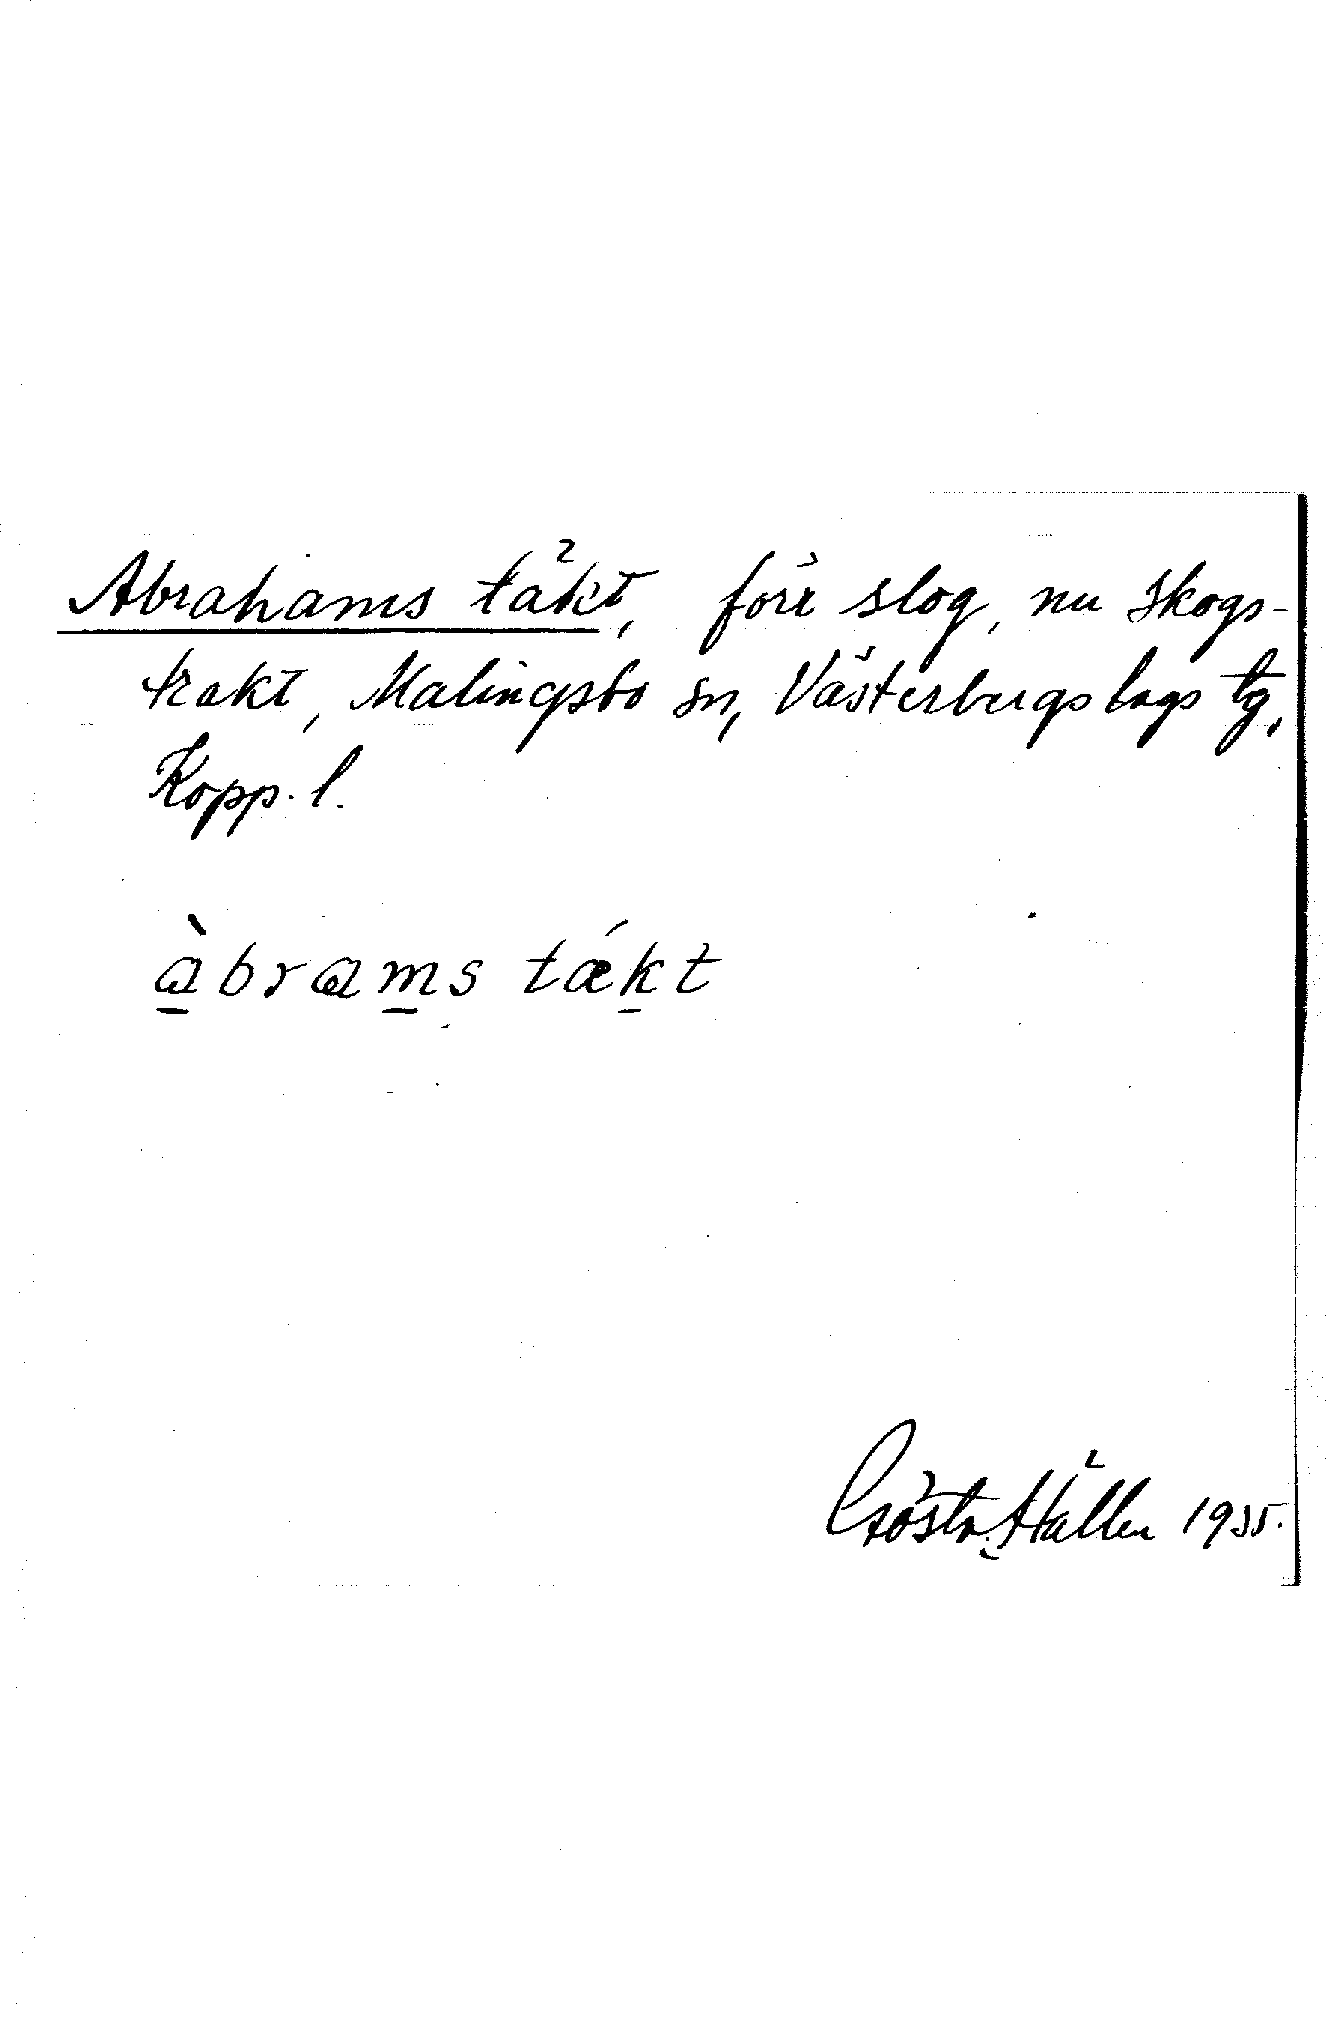 Abrahams täkt, förr slog, nu skogs-
trakt, Malingsbo sn, Västerbergslags tg,
Kopp. l.
àbrams tǽkt
Gösta Hällen 1935.